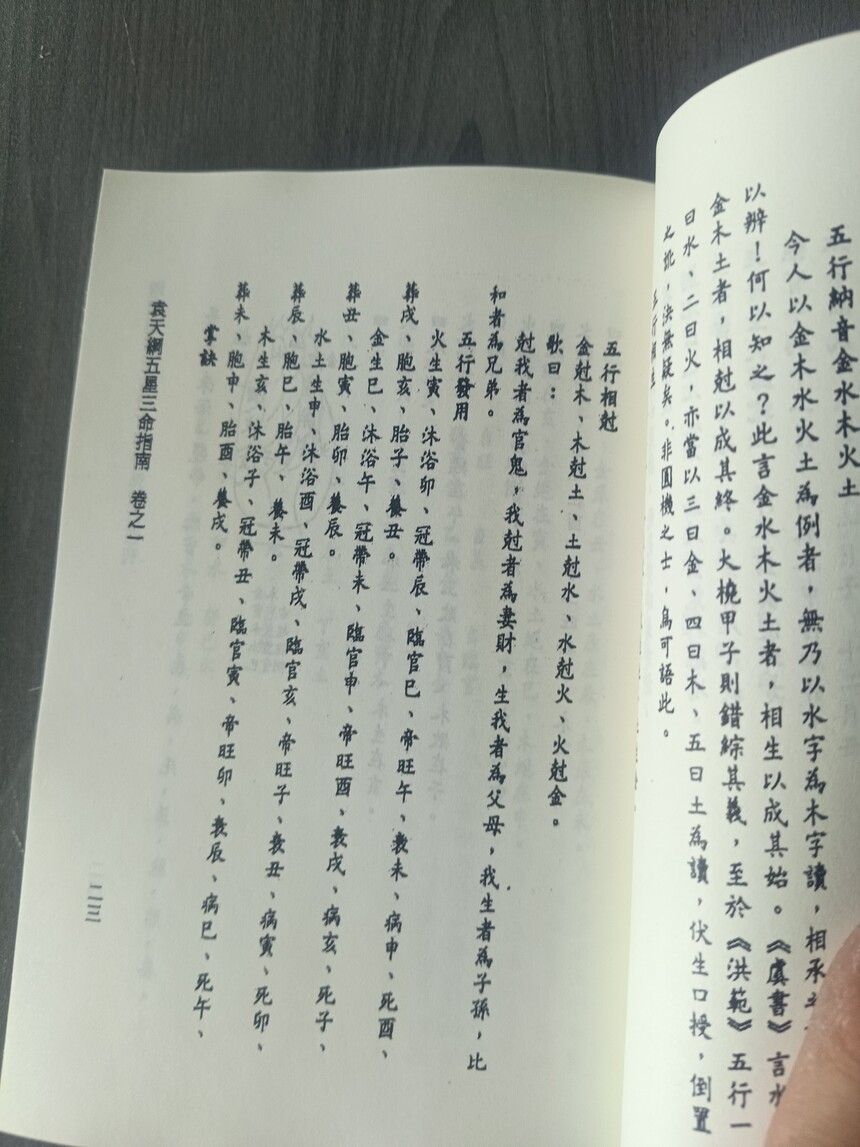 五行納音金水木火土
今人以金木水火土為例者，無乃以水字為木字讀，相承
以辨！何以知之？此言金水木火土者，相生以成其始。《虞書》言水
金木土者，相尅以成其終。大橈甲子則錯綜其義，至於《洪範》五行一
曰水、二曰火，亦當以三曰金、四曰木、五曰土為讀，伏生口授，倒置
之訛，決無疑矣。非圓機之士，烏可語此。
五行相
五行相尅
金尅木、木尅土、土尅水、水尅火、火尅金。
歌曰：
尅我者為官鬼，我尅者為妻財，生我者為父母，我生者為子孫，比
和者為兄弟。
五行發用
火生寅、沐浴卯、冠帶辰、臨官巳、帝旺午、衰未、病申、死酉、
葬戌、胞亥、胎子、養丑。
金生巳、沐浴午、冠帶未、臨官申、帝旺酉、衰戌、病亥、死子、
葬丑、胞寅、胎卯、養辰。
水土生申、沐浴酉、冠帶戌、臨官亥、帝旺子、衰丑、病寅、死卯、
葬辰、胞巳、胎午、養未。
木生亥、沐浴子、冠帶丑、臨官寅、帝旺卯、衰辰、病巳、死午、
葬未、胞申、胎酉、養戌。
掌訣
袁天綱五星三命指南 卷之一
二三